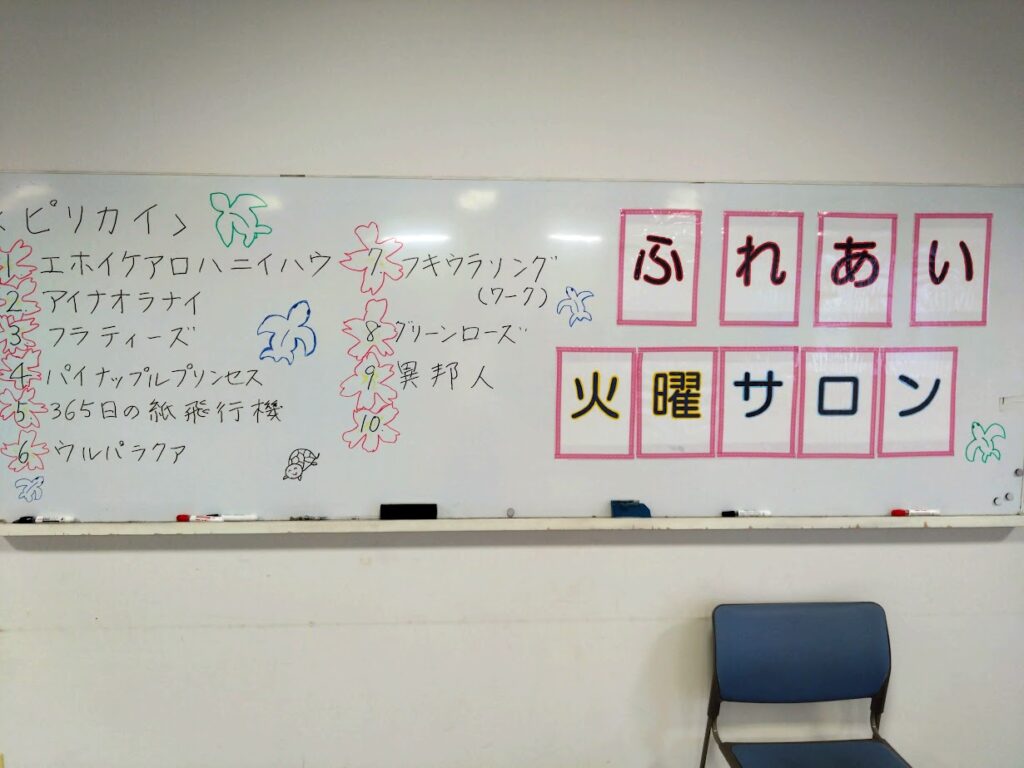 <ピリカイ>
1 エホイケアロハニイハウ
2 アイナオラナイ
3 フラティーズ
4 パイナップルプリンセス
5 365日の紙飛行機
6 ウルパラクア
7 フキウラソング
(ワーク)
8 グリーンローズ
9 異邦人
10
ふれあい
火曜サロン